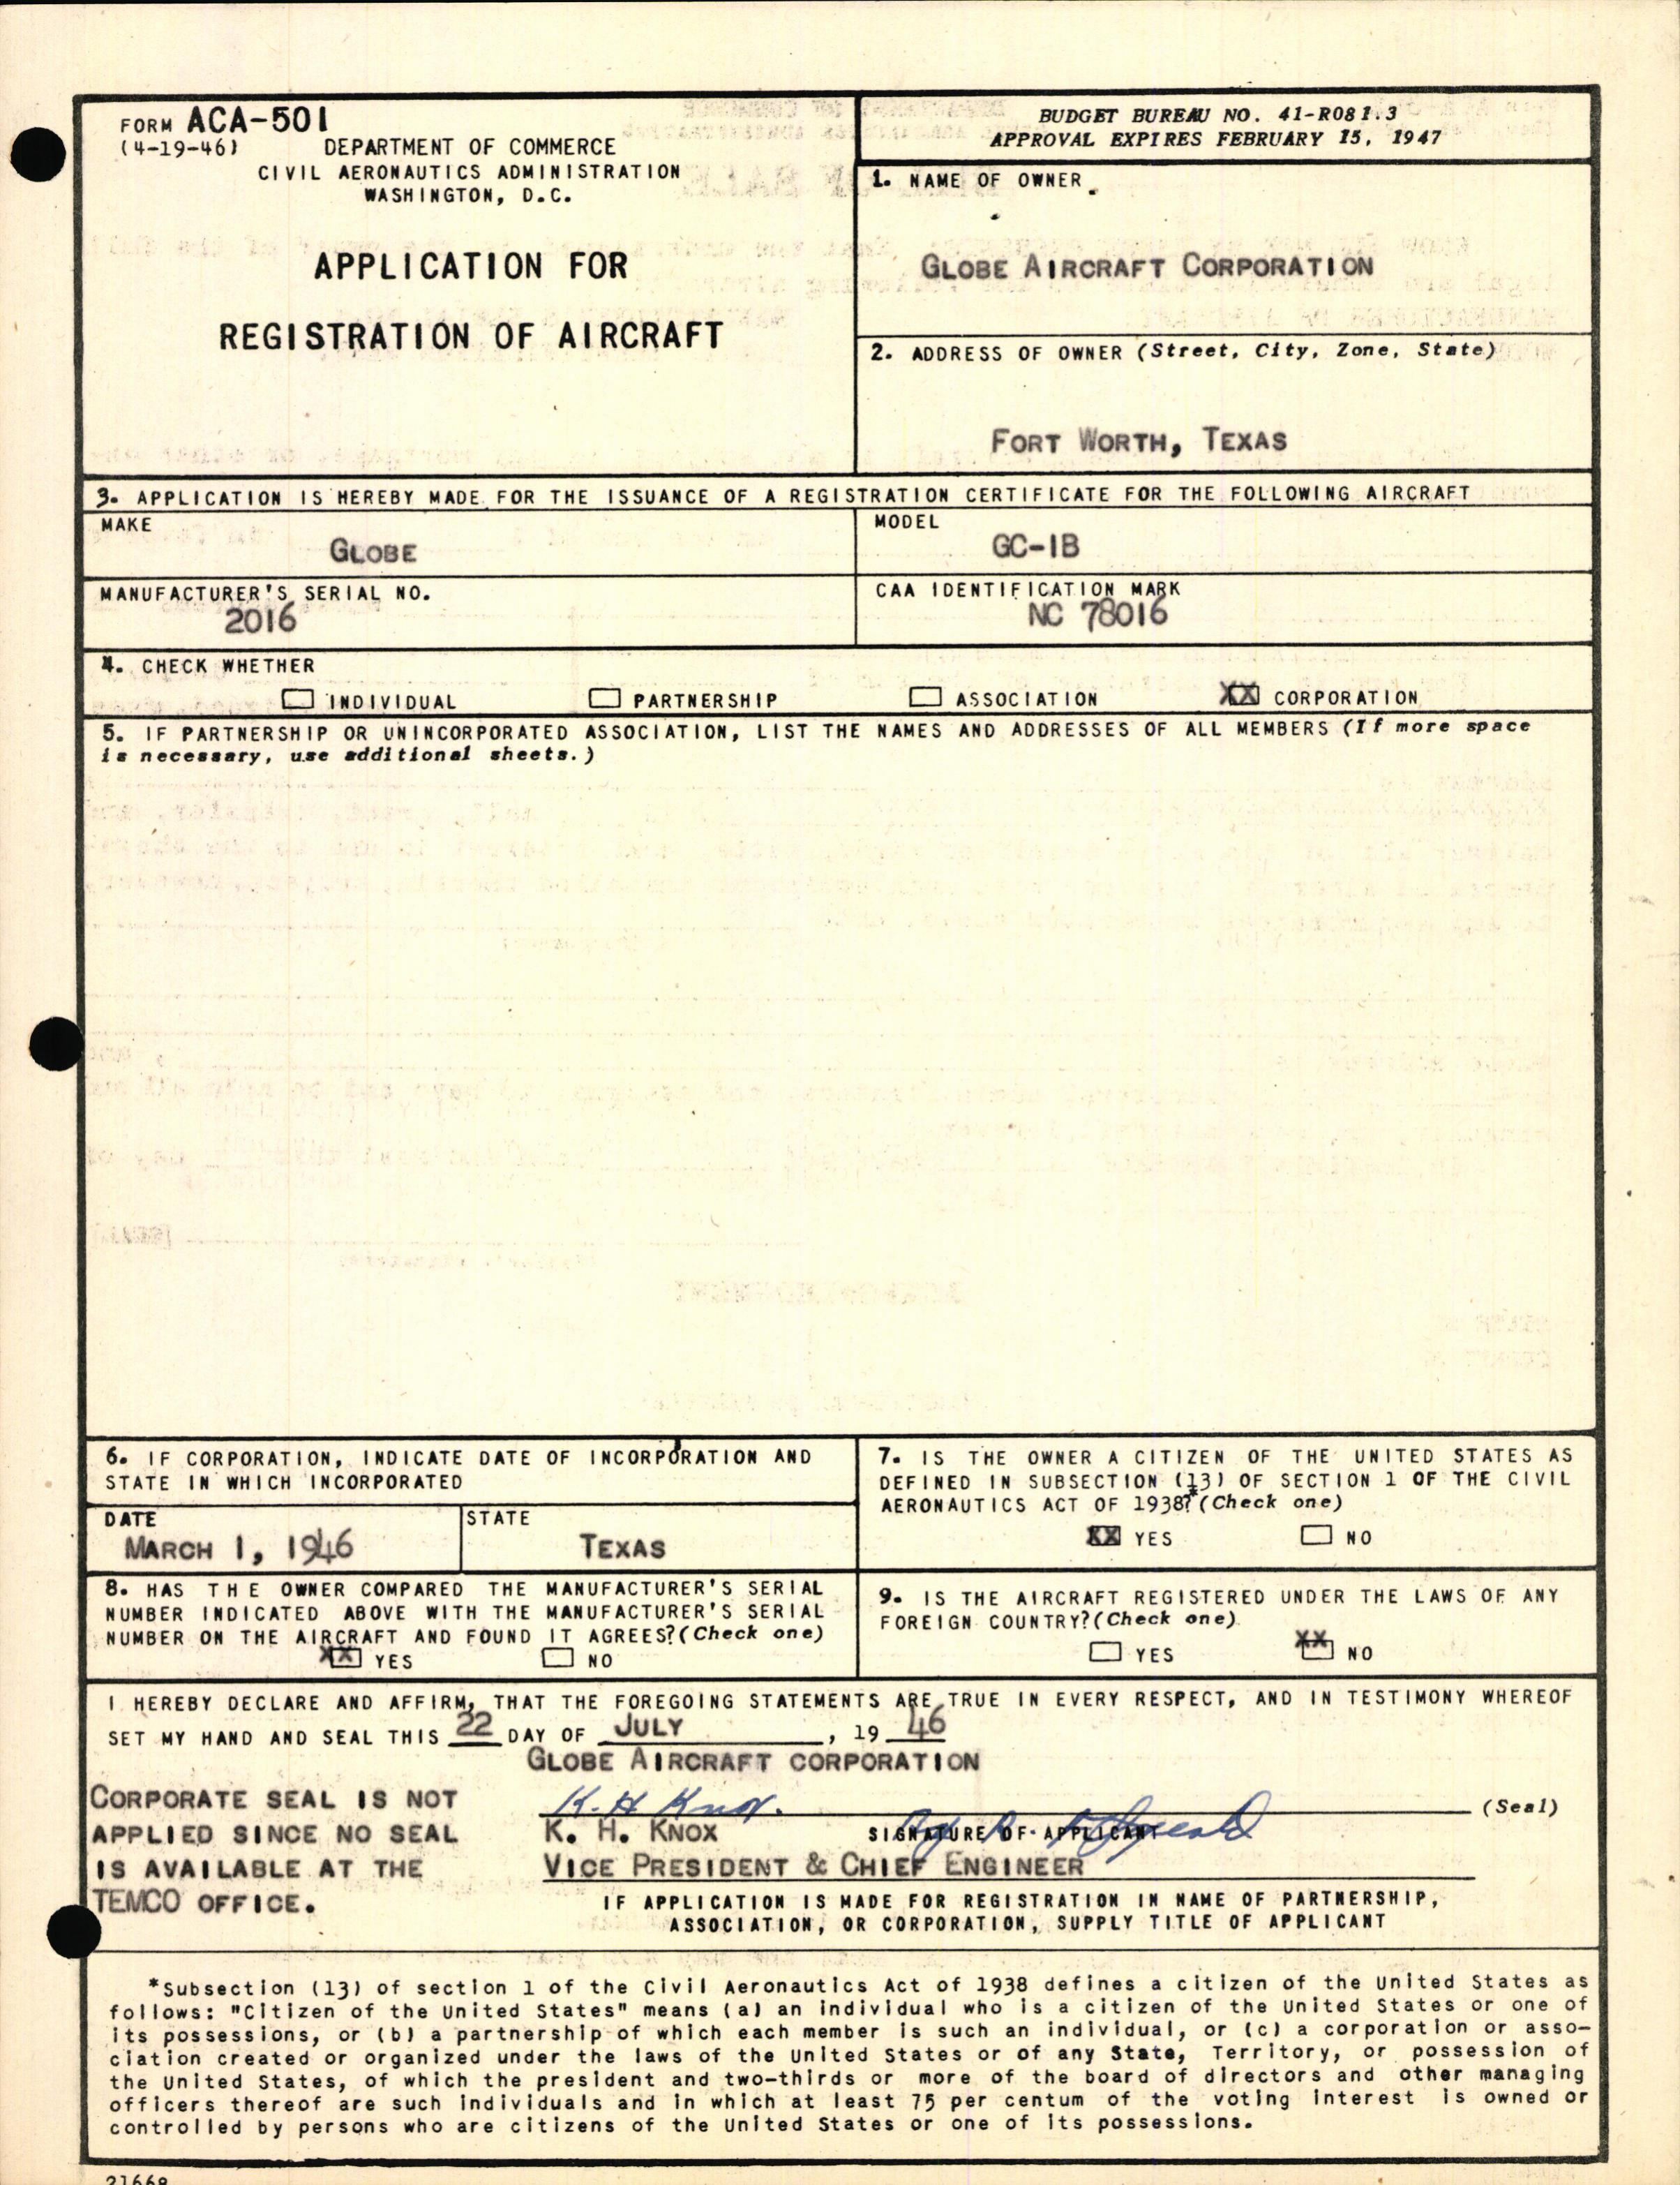 FORM ACA-501
(4-19-46)
DEPARTMENT OF COMMERCE
CIVIL AERONAUTICS ADMINISTRATION
WASHINGTON, D.C.
APPLICATION FOR
REGISTRATION OF AIRCRAFT
BUDGET BUREAU NO. 41-R081.3
APPROVAL EXPIRES FEBRUARY 15, 1947
1. NAME OF OWNER
GLOBE AIRCRAFT CORPORATION
2. ADDRESS OF OWNER (Street, City, Zone, State)
FORT WORTH, TEXAS
3. APPLICATION IS HEREBY MADE FOR THE ISSUANCE OF A REGISTRATION CERTIFICATE FOR THE FOLLOWING AIRCRAFT
MAKE
GLOBE
MODEL
GC-1B
MANUFACTURER'S SERIAL NO.
2016
CAA IDENTIFICATION MARK
NC 78016
4. CHECK WHETHER
INDIVIDUAL PARTNERSHIP ASSOCIATION XX CORPORATION
5. IF PARTNERSHIP OR UNINCORPORATED ASSOCIATION, LIST THE NAMES AND ADDRESSES OF ALL MEMBERS (If more space
is necessary, use additional sheets.)
6. IF CORPORATION, INDICATE DATE OF INCORPORATION AND
STATE IN WHICH INCORPORATED
DATE
MARCH 1, 1946
STATE
TEXAS
7. IS THE OWNER A CITIZEN OF THE UNITED STATES AS
DEFINED IN SUBSECTION (13) OF SECTION 1 OF THE CIVIL
AERONAUTICS ACT OF 1938?* (Check one)
XX YES NO
8. HAS THE OWNER COMPARED THE MANUFACTURER'S SERIAL
NUMBER INDICATED ABOVE WITH THE MANUFACTURER'S SERIAL
NUMBER ON THE AIRCRAFT AND FOUND IT AGREES? (Check one)
XX YES NO
9. IS THE AIRCRAFT REGISTERED UNDER THE LAWS OF ANY
FOREIGN COUNTRY? (Check one)
YES XX NO
I HEREBY DECLARE AND AFFIRM, THAT THE FOREGOING STATEMENTS ARE TRUE IN EVERY RESPECT, AND IN TESTIMONY WHEREOF
SET MY HAND AND SEAL THIS 22 DAY OF JULY, 19 46
GLOBE AIRCRAFT CORPORATION
CORPORATE SEAL IS NOT
APPLIED SINCE NO SEAL
IS AVAILABLE AT THE
TEMCO OFFICE.
K. H. Knox. (Seal)
K. H. KNOX SIGNATURE OF APPLICANT
VICE PRESIDENT & CHIEF ENGINEER
IF APPLICATION IS MADE FOR REGISTRATION IN NAME OF PARTNERSHIP,
ASSOCIATION, OR CORPORATION, SUPPLY TITLE OF APPLICANT
*Subsection (13) of section 1 of the Civil Aeronautics Act of 1938 defines a citizen of the United States as
follows: "Citizen of the United States" means (a) an individual who is a citizen of the United States or one of
its possessions, or (b) a partnership of which each member is such an individual, or (c) a corporation or asso-
ciation created or organized under the laws of the United States or of any State, Territory, or possession of
the United States, of which the president and two-thirds or more of the board of directors and other managing
officers thereof are such individuals and in which at least 75 per centum of the voting interest is owned or
controlled by persons who are citizens of the United States or one of its possessions.
21668